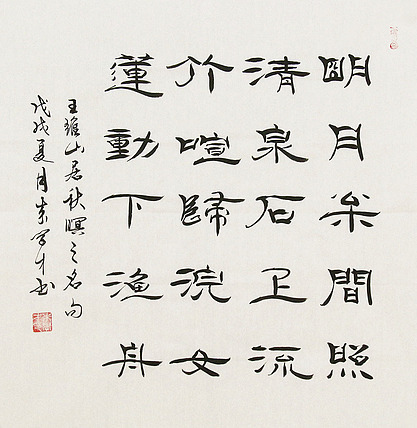 明月松間照
清泉石上流
竹喧歸浣女
蓮動下漁舟
王維山居秋暝之名句
戊戌夏月学才书